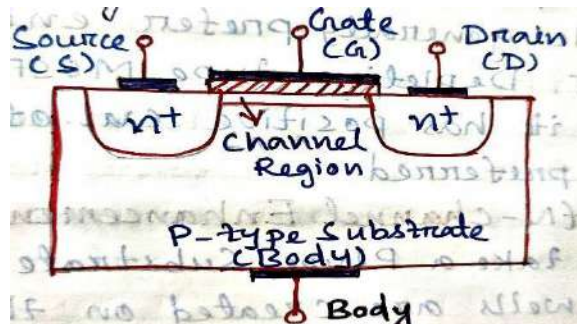 Source
(S)
Gate
(G)
Drain
(D)
n+
n+
Channel
Region
P-type Substrate
(Body)
Body